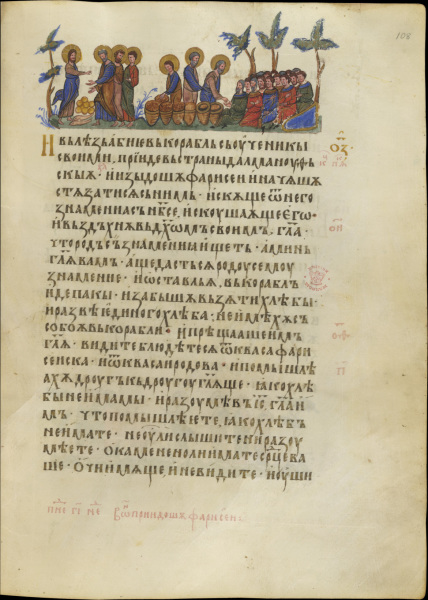 108
И вьлѣзь абие вь корабль сь оученикы
своими, прїиде вь страны далманоуѳь
скыѧ · и изыдошѧ фарисеи и начѧшѧ
стѧзатисѧ сь нимь · искѫще ѿ него
знамениа сь нб҃се, искоушаѫще его ·
и въздъхнѫвь дх҃омь своимь, гл҃а ·
что родъ сь знамениа ищеть · аминь
гл҃ѫ вамь · аще дастьсѧ родоу семоу
знамение · и оставль ѧ, вь корабль
иде пакы · и забышѧ вьзѧти хлѣбы ·
и развѣ единого хлѣба, не имѣхѫ сь
собоѫ вь корабли · и прѣщааше имь
гл҃ѧ · видите блюдѣтесѧ ѿ кваса фари
сеиска · и ѿ кваса иродова · и помышлѣ
ахѫ дроугъ кь дроугоу гл҃ѫще · ꙗко хлѣ
бы не имамы · и разоумѣвь іс҃, гл҃а и
мь · что помышлѣете, ꙗко хлѣбъ
не имате · не оу ли слышите ни разоу
мѣете · окаменено ли имате ср҃це ва
ше · очи имѫще, и не видите · и оуши
о҃ꙁ
о҃и
о҃ѳ
п҃
приидошѫ фарисеи